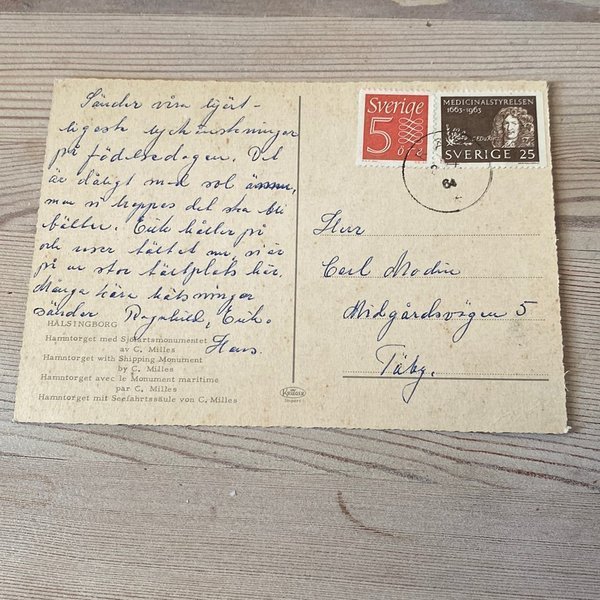 Sänder våra hjärt-
ligaste lyckönskningar
på födelsedagen. Det
är dåligt med sol ännu,
men vi hoppas det ska bli
bättre. Erik håller på
och reser tältet nu, vi är
på en stor tältplats här.
Många kära hälsningar
sänder Ragnhild, Erik.
Hans.
HÄLSINGBORG
Hamntorget med Sjöfartsmonumentet
av C. Milles
Hamntorget with Shipping Monument
by C. Milles
Hamntorget avec le Monument maritime
par C. Milles
Hamntorget mit Seefahrtssäule von C. Milles
Sverige
5
ÖRE
MEDICINALSTYRELSEN
1663-1963
SVERIGE 25
64
Herr
Carl Modin
Midgårdsvägen 5
Täby.